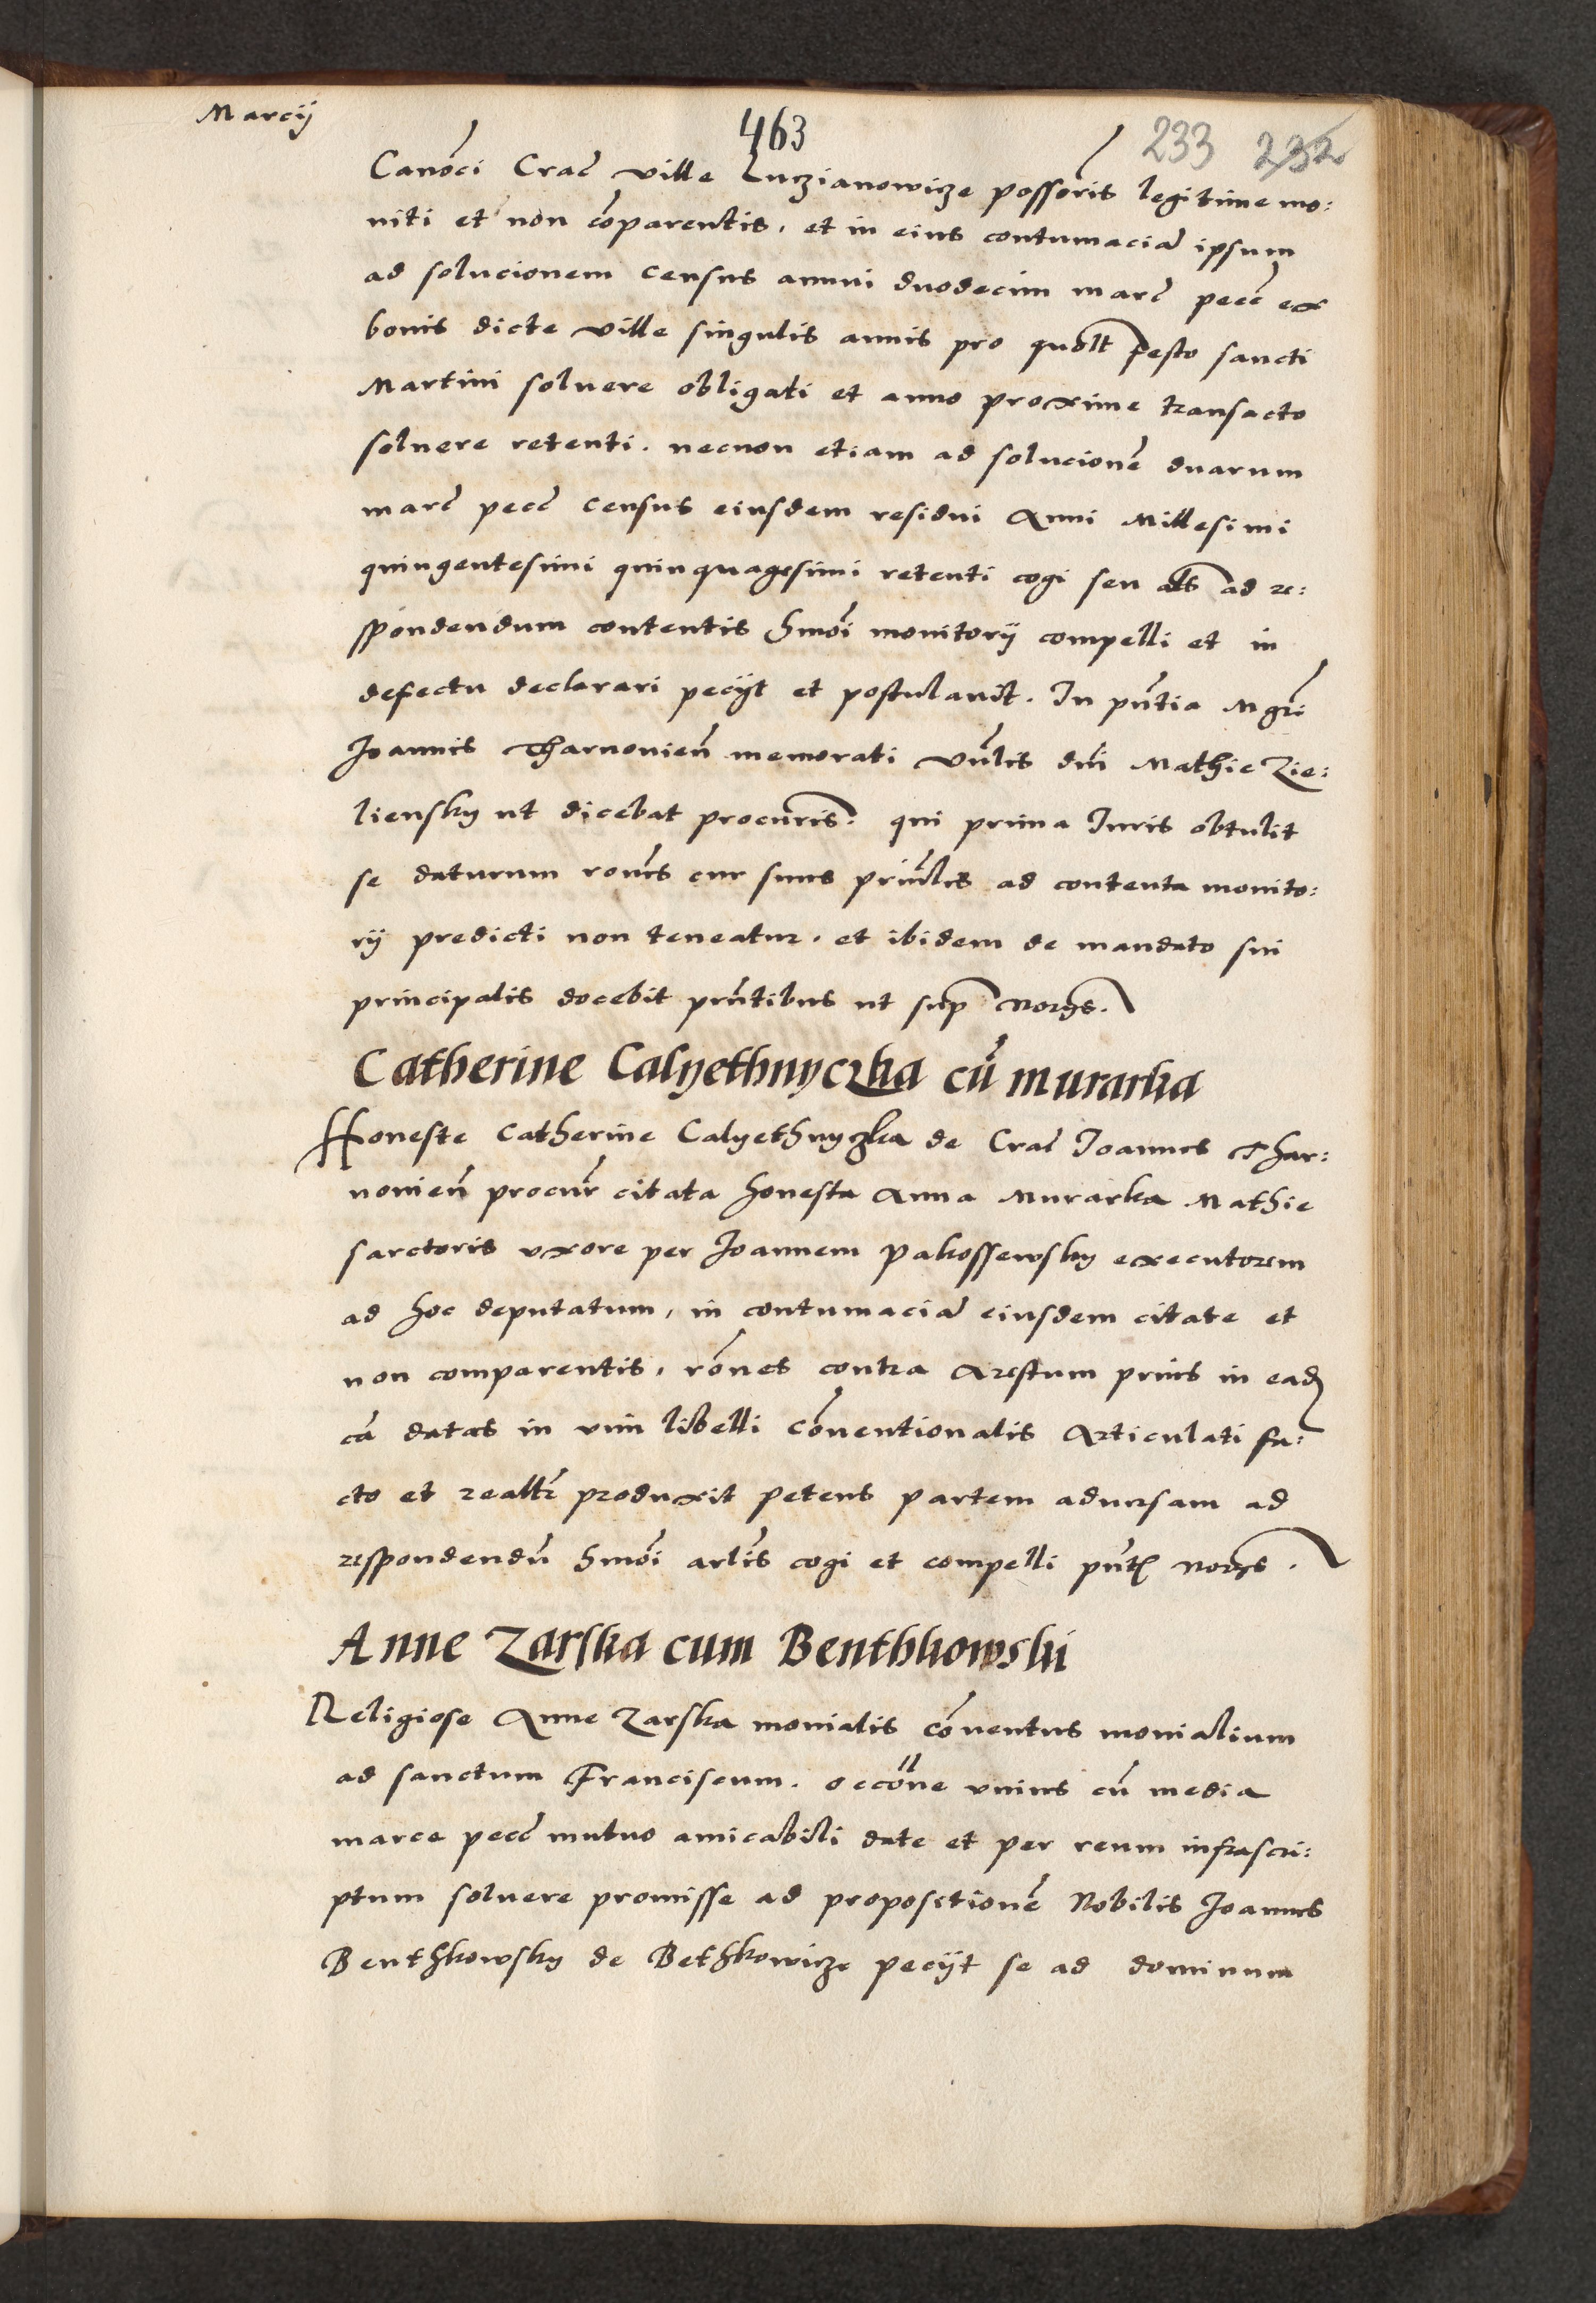 Marcij
463
233 232
Canoci Crac ville Luczianowicze possoris legitime mo:
niti et non comparentis, et in eius contumacia ipsum
ad solucionem census annui duodecim marc pecc ex
bonis dicte ville singulis annis pro quolt festo sancti
Martini soluere obligati et anno proxime transacto
soluere retenti. necnon etiam ad solucione duarum
marc pecc census eiusdem residui Anni Millesimi
quingentesimi quinquagesimi retenti cogi seu als ad re:
spondendum contentis hmoi monitorij compelli et in
defectu declarari pecijt et postulavit. In pntia Mgri
Joannis Tharnouien memorati vnlis dni Mathie Zie:
liensky ut dicebat procuris. qui prima Iuris obtulit
se daturum rones cur suus prinlis ad contenta monito:
rij predicti non teneatur. et ibidem de mandato sui
principalis docebit pntibus ut sup Norgs.
Catherine Calyethnyczka cu murarka
Honeste Catherine Calyethnyczka de Crac Joannes Thar:
nouien procur citata honesta Anna Murarka Mathie
sarctoris vxore per Joannem Pakossewsky executorem
ad hoc deputatum, in contumacia eiusdem citate et
non comparentis, rones contra Arestum prius in ead
ca datas in vim libelli conuentionalis Articulati fa:
cto et realtr produxit petens partem aduersam ad
respondendu hmoi artlis cogi et compelli pnt Norgs.
Anne Zarska cum Benthkowski
Religiose Anne Zarska monialis conuentus monialium
ad sanctum Franciscum. occone vnius cu media
marce pecc mutuo amicabili date et per reum infrascri:
ptum soluere promisse ad propositione Nobilis Joannes
Benthkowsky de Bethkowicze pecijt se ad dominum